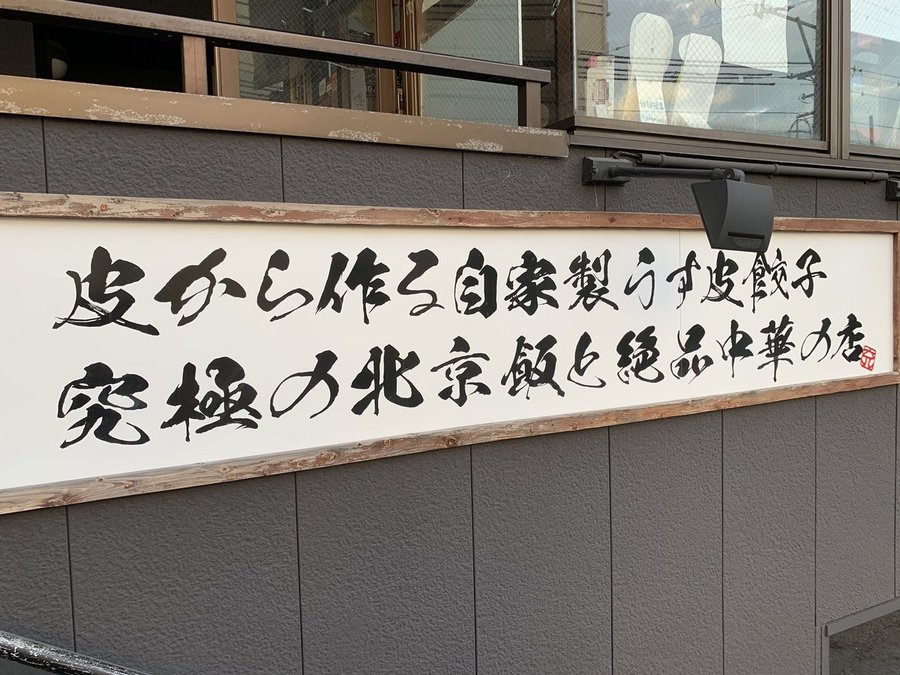 皮から作る自家製うす皮餃子
究極の北京飯と絶品中華の店